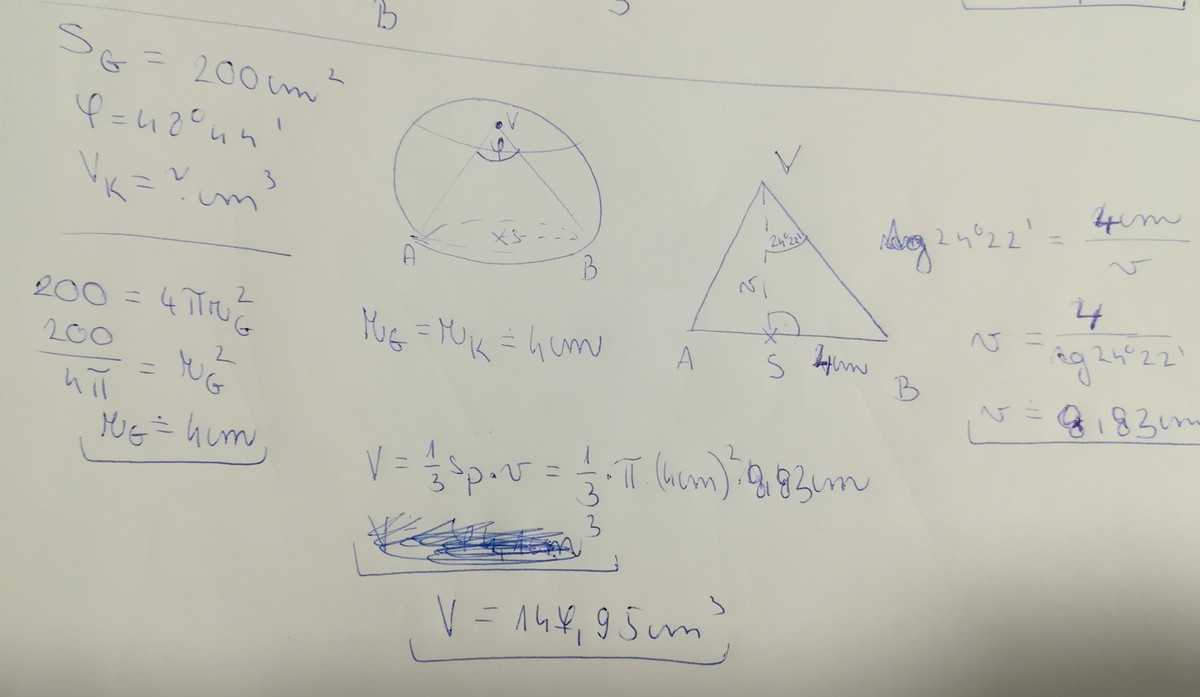 B
S_G = 200 cm²
φ = 48°44'
V_K = ? cm³
200 = 4πr_G²
200/4π = r_G²
r_G ≐ 4cm
V
φ
S
A
B
r_G = r_K ≐ 4cm
V
24°22'
v
A
S
4cm
B
tg 24°22' = 4cm/v
v = 4/tg 24°22'
v ≐ 8,83 cm
V = 1/3 S_p · v = 1/3 · π · (4cm)² · 8,83cm
V = 147,95 cm³